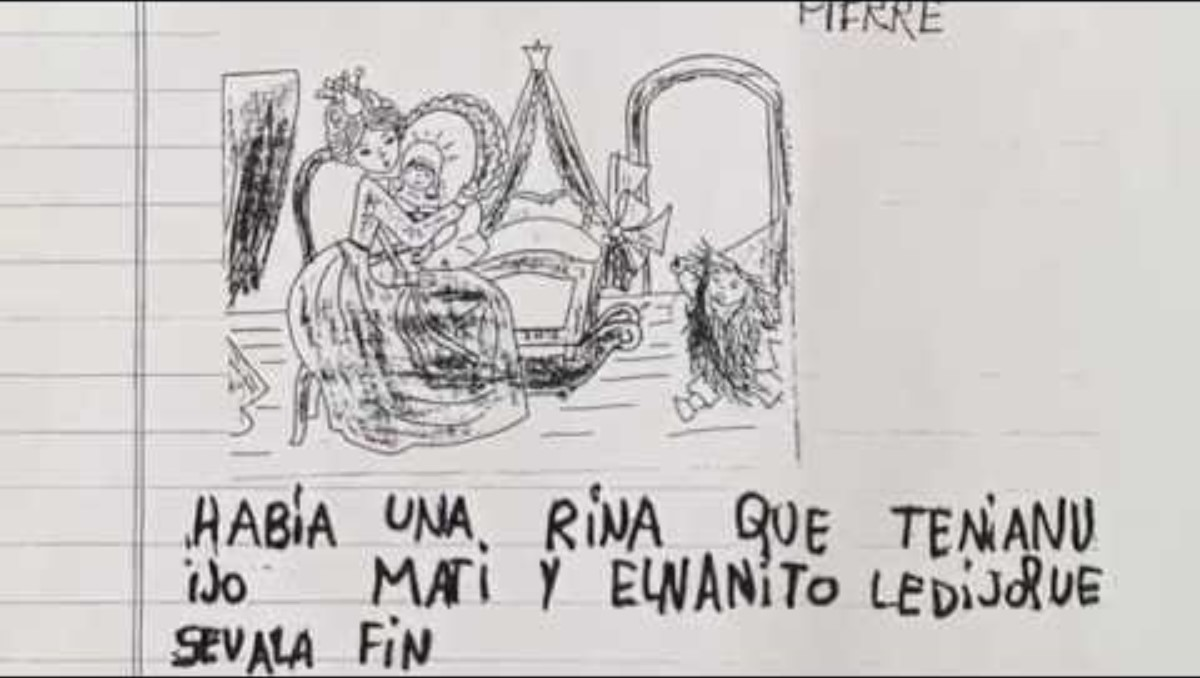 PIERRE
HABÍA UNA RINA QUE TENIANU
IJO MATI Y ELNANITO LEDIJOQUE
SEVALA FIN